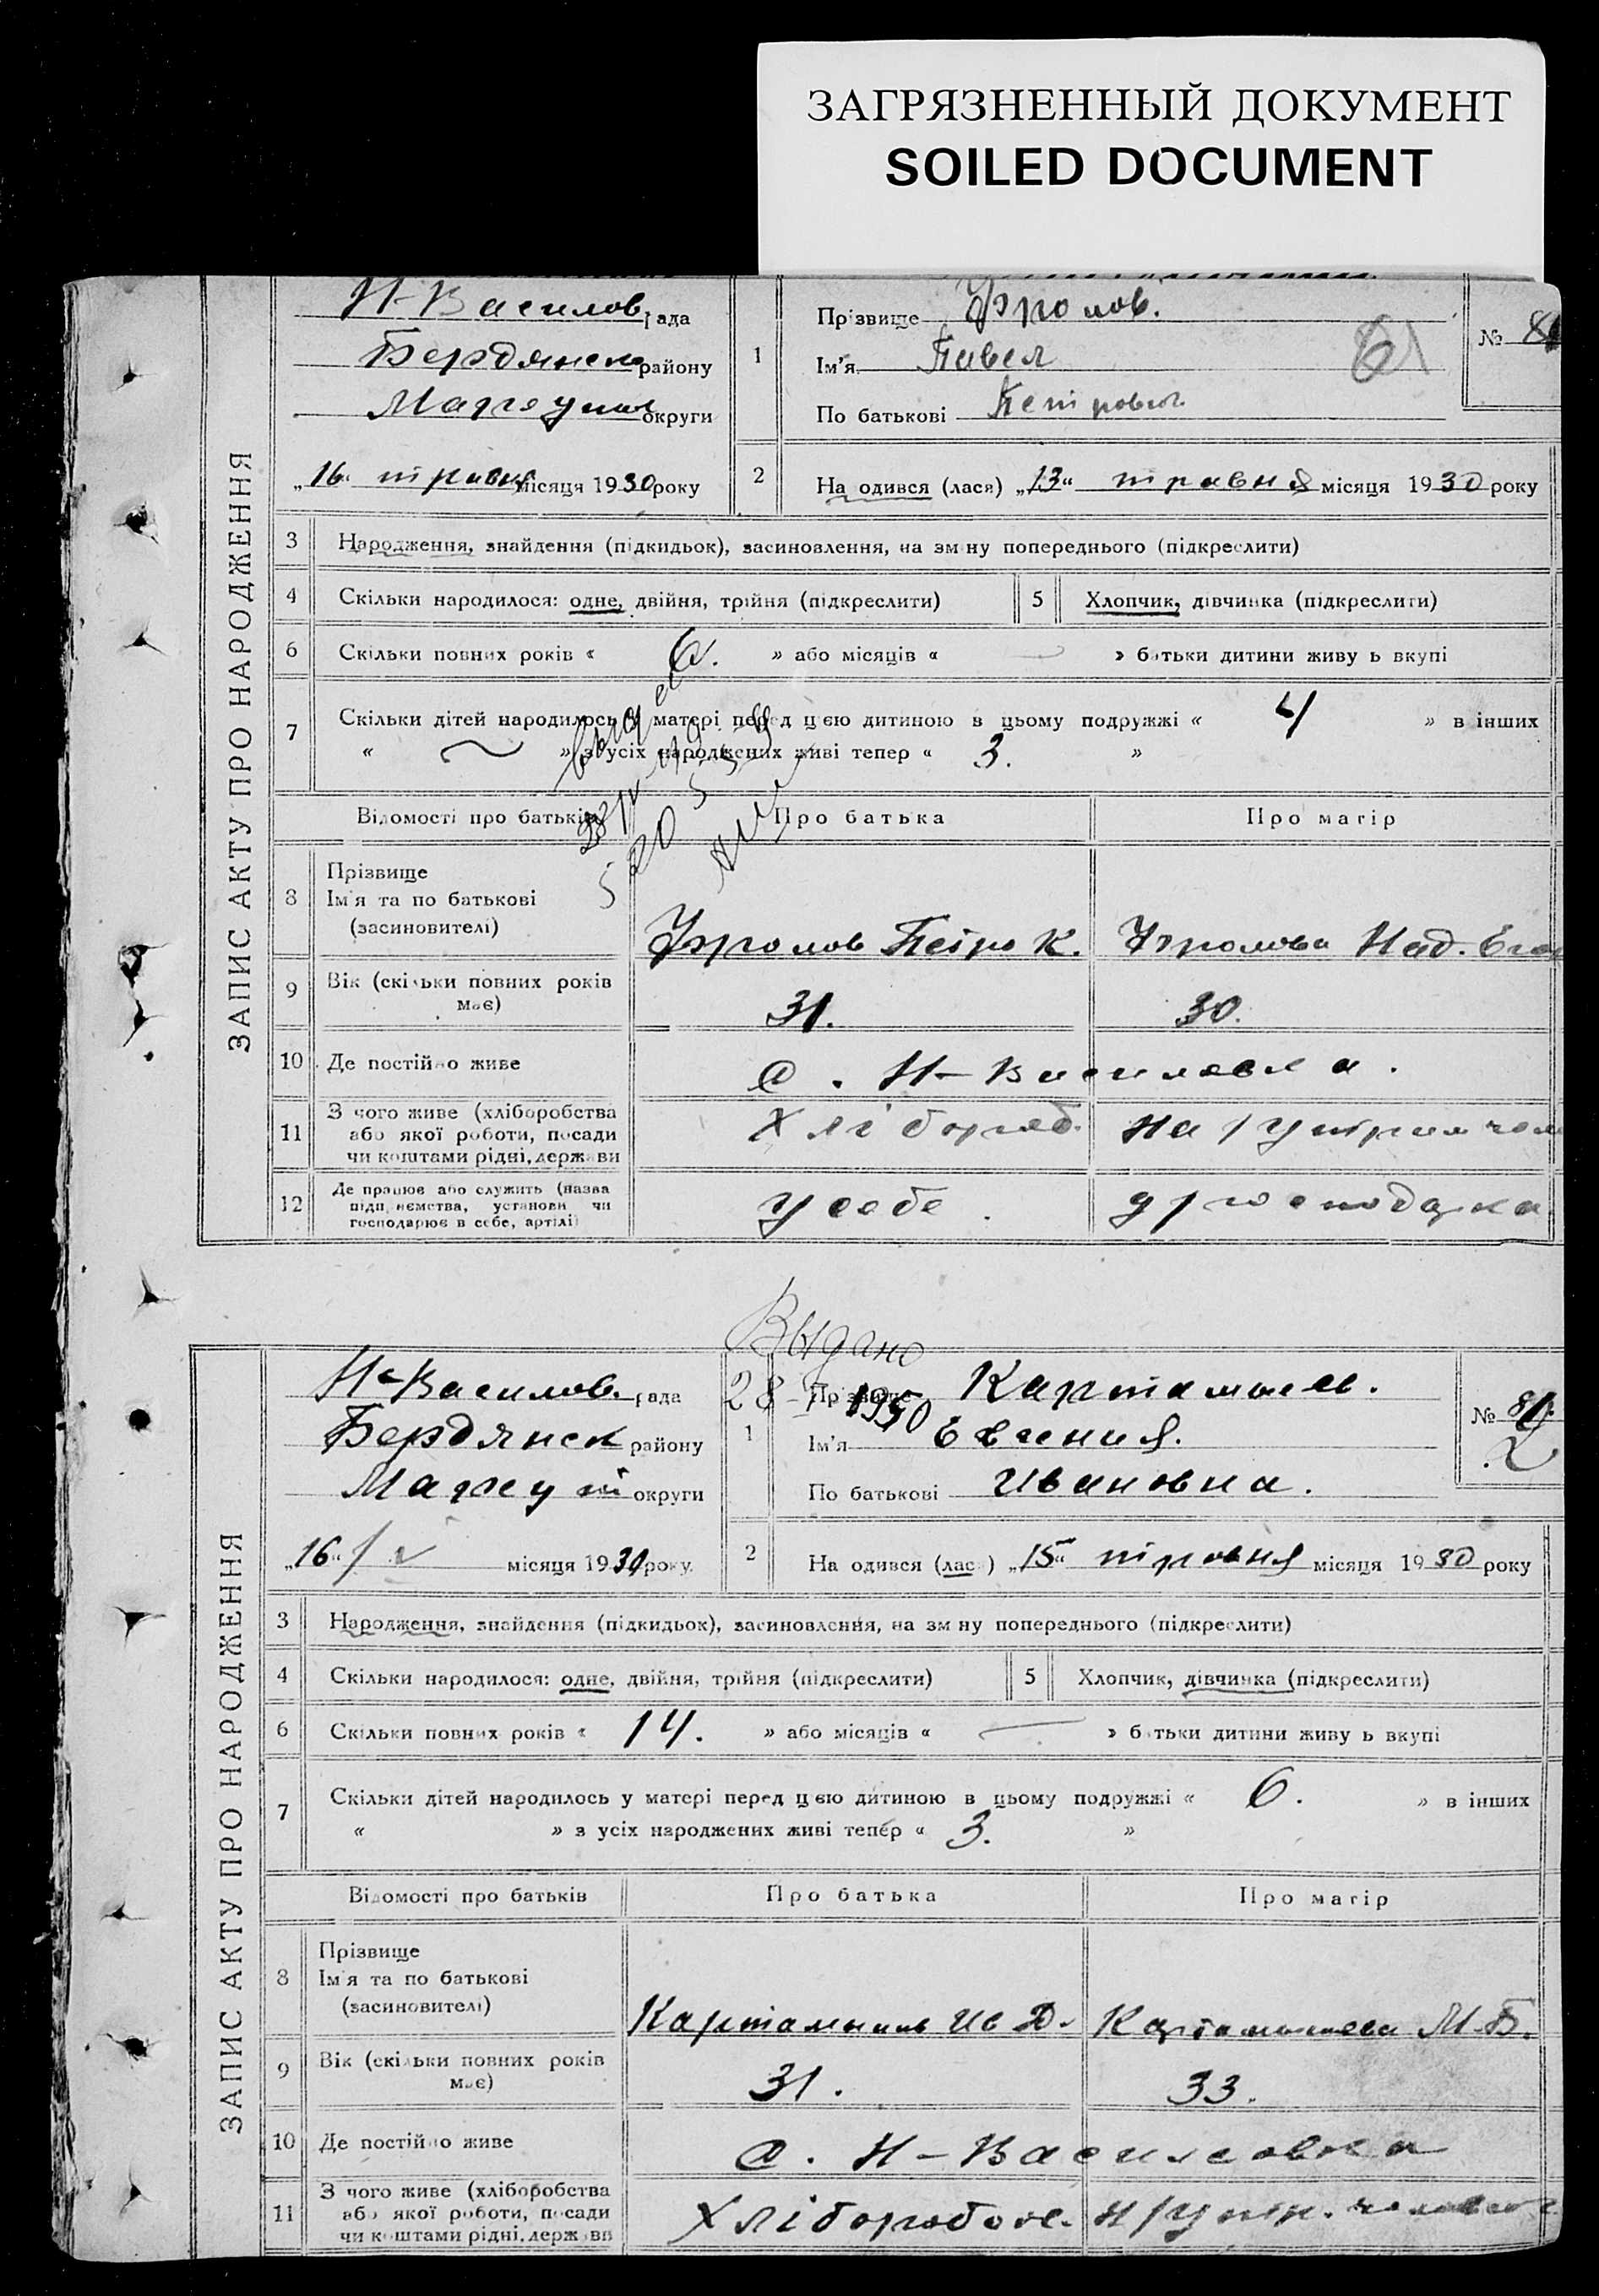 ЗАГРЯЗНЕННЫЙ ДОКУМЕНТ
SOILED DOCUMENT
ЗАПИС АКТУ ПРО НАРОДЖЕННЯ
Н-Василов. рада
Бердянск району
округи
„16“ травня місяця 1930 року
1 Прізвище Фролов.
Ім'я Павел
По батькові Петрович
№ 81
61
2 На одився (лася) „13“ травня місяця 1930 року
3 Народження, знайдення (підкидьок), засиновлення, на зм ну попереднього (підкреслити)
4 Скільки народилося: одне, двійня, трійня (підкреслити)
5 Хлопчик, дівчинка (підкреслити)
6 Скільки повних років « 6. » або місяців « — » батьки дитини живу ь вкупі
7 Скільки дітей народилось у матері перед цією дитиною в цьому подружжі « 4 » в інших
« ~ » з усіх народжених живі тепер « 3. »
Відомості про батьків Про батька Про матір
8 Прізвище
Ім'я та по батькові
(засиновителі)
Фролов Петро К. Фролова Над.
9 Вік (скільки повних років
має)
31. 30.
10 Де постійно живе
с. Н-Василовка.
11 З чого живе (хліборобства
або якої роботи, посади
чи коштами рідні, держави
Хлібороб. На / Утрим
12 Де працює або служить (назва
підп, ємства, установи чи
господарює в себе, артілі)
у себе. д/господарка
Выдано
28 - 1950
ЗАПИС АКТУ ПРО НАРОДЖЕННЯ
Н-Василов. рада
Бердянск району
округи
„16“/V місяця 1930 року
1 Прізвище
Ім'я Евгения.
По батькові Ивановна.
№
2 На одився (лас ) „15“ травня місяця 1930 року
3 Народження, знайдення (підкидьок), засиновлення, на зм ну попереднього (підкреслити)
4 Скільки народилося: одне, двійня, трійня (підкреслити)
5 Хлопчик, дівчинка (підкреслити)
6 Скільки повних років « 14. » або місяців « — » батьки дитини живу ь вкупі
7 Скільки дітей народилось у матері перед цією дитиною в цьому подружжі « 6. » в інших
« » з усіх народжених живі тепер « 3. »
Відомості про батьків Про батька Про матір
8 Прізвище
Ім'я та по батькові
(засиновителі)
Картамыш Ив Д. Картамышева М. Б.
9 Вік (скільки повних років
має)
31. 33.
10 Де постійно живе
с. Н-Василовка
11 З чого живе (хліборобства
або якої роботи, посади
чи коштами рідні, держави
Хлібороб Н/Утр.